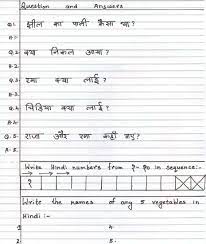 Question and Answers
Q.1- झील का पानी कैसा था?
A.1-
Q.2- क्या निकल आया?
A.2-
Q.3- रमा क्या लाई?
A.3-
Q.4- चिड़िया क्या लाई?
A.4-
Q.5- राजा और रमा कहाँ गए?
A-5.
Write Hindi numbers from १-१० in sequence:-
१
Write the names of any 5 vegetables in
Hindi :-
1. 4.
2. 5.